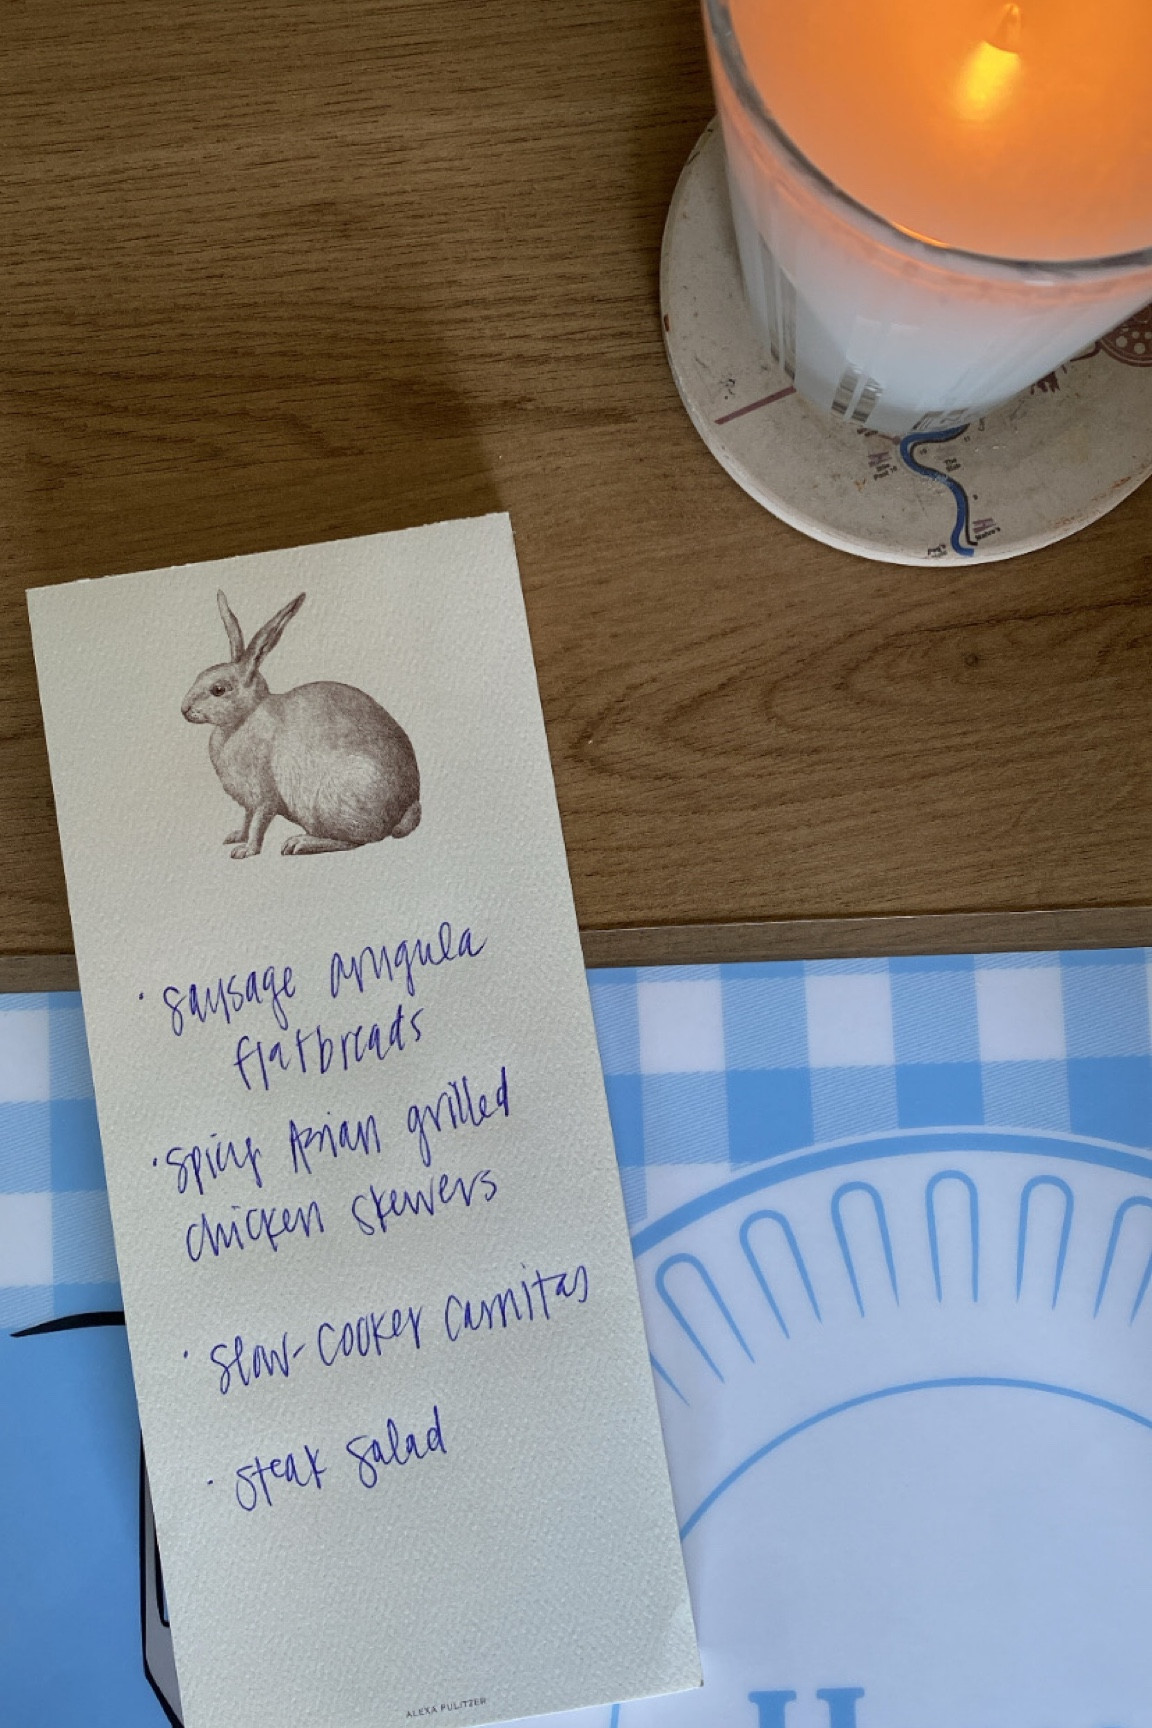 · Sausage arugula
flatbreads
· Spicy Asian grilled
chicken skewers
· Slow-cooker carnitas
· Steak Salad
ALEXA PULITZER